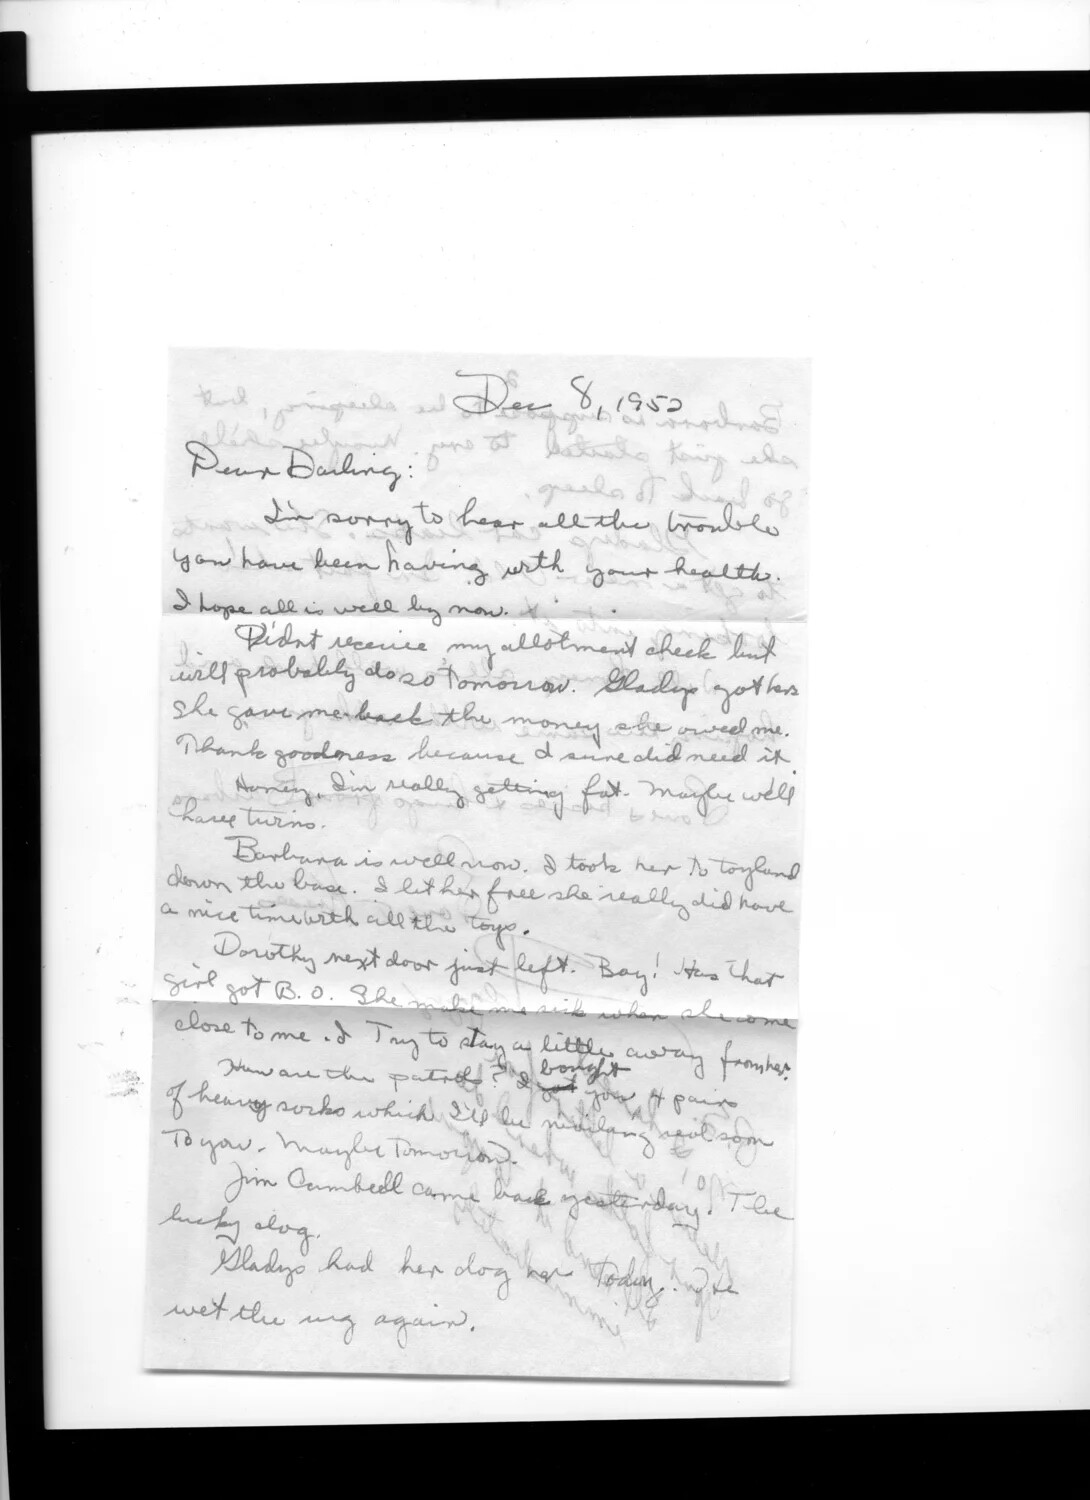 Dec 8, 1952
Dear Darling:
I'm sorry to hear all the trouble
you have been having with your health.
I hope all is well by now.
Didnt receive my allotment check but
will probably do so tomorrow. Gladys got hers
She gave me back the money she owed me.
Thank goodness because I sure did need it.
Honey, I'm really getting fat. Maybe we'll
have twins.
Barbara is well now. I took her to toyland
down the base. I let her free she really did have
a nice time with all the toys.
Dorothy next door just left. Boy! Has that
girl got B.O. She make me sick when she come
close to me. I Try to stay a little away from her.
How are the patrols? I got bought you 4 pairs
of heavy socks which I'll be mailing real soon
To you. Maybe Tomorrow.
Jim Cambell came back yesterday. The
lucky dog.
Gladys had her dog her Today. He
wet the rug again.